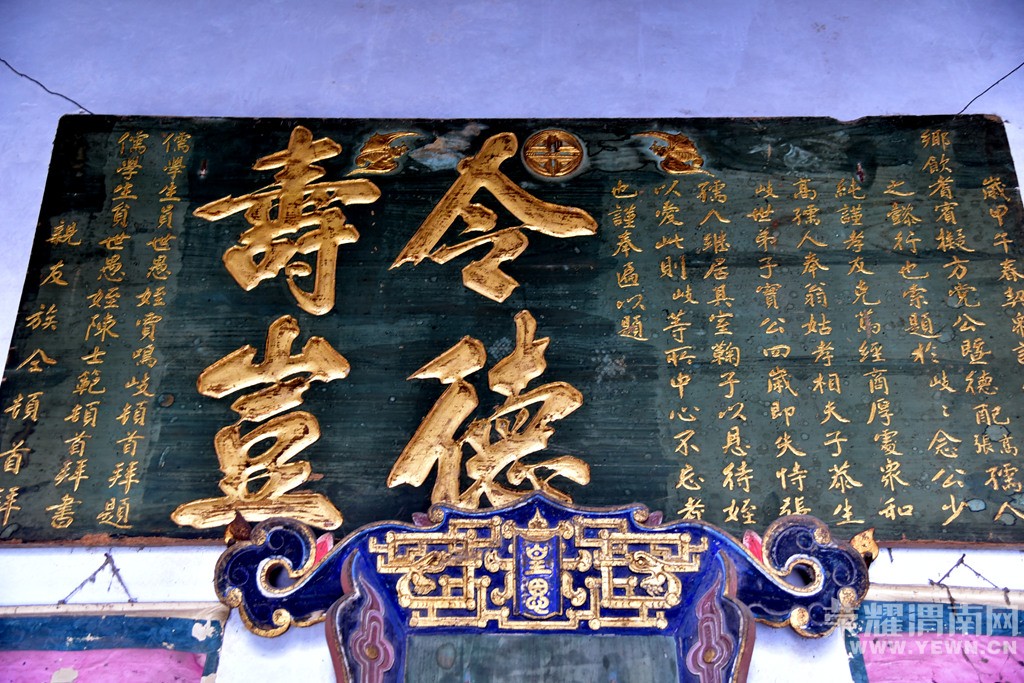 歲甲午春
鄉飲耆賓擬方党公暨德配高張孺人
之懿行也索題於岐岐念公少
純謹孝友克篤經商厚處眾和
萬孺人奉翁姑孝相夫子恭生
岐世弟子寶公四歲即失恃張
孺人繼居其室鞠子以恩待姪
以愛此則岐等所中心不忘者
也謹奉匾以題
令德
壽豈
儒學生員世愚姪賈鳴岐頓首拜題
儒學生員世愚姪陳士範頓首拜書
親友族仝頓首拜
皇恩
荣耀渭南网
WWW.YEWN.CN